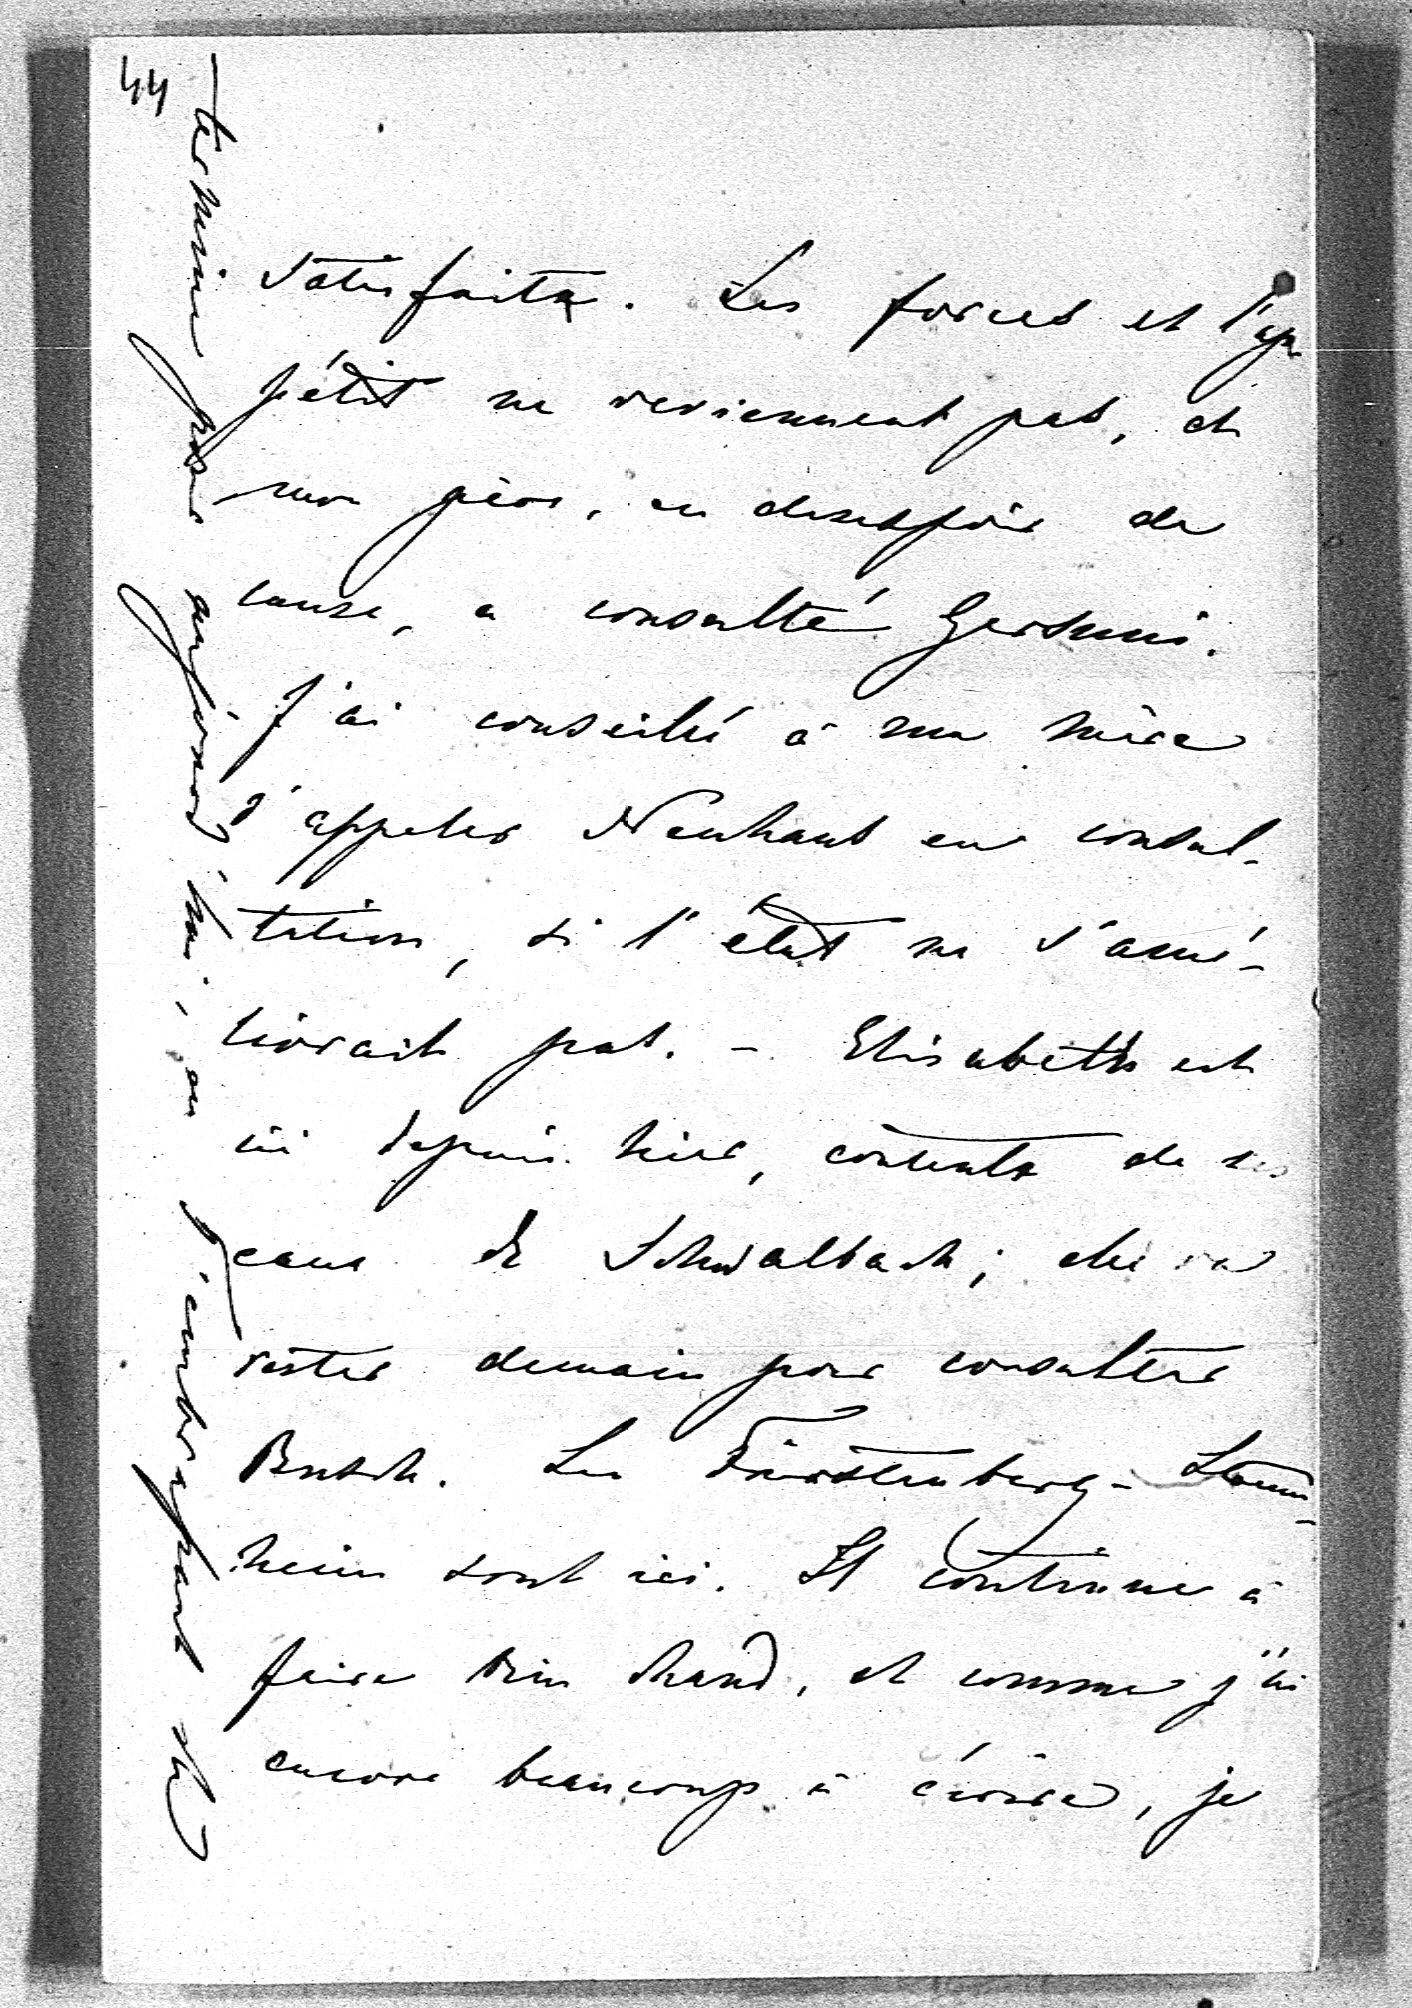 44
satisfaite. Les forces et l'ap-
pétit ne reviennent pas, et
mon père, en desespoir de
cause, a consulté Gersuni.
J'ai conseillé à ma mère
d'appeler Neuhaus en consul-
tation, si l'état ne s'amé-
liorait pas. - Elisabeth est
ici depuis hier, contente de ses
eaux de Schwalbach; elle va
rester demain pour consulter
Busch. Les Fürstenberg-Stamm-
heim sont ici. Il continue à
faire bien chaud, et comme j'ai
encore beaucoup à écrire, je
termine pour aujourd'hui, en
t'embrassant